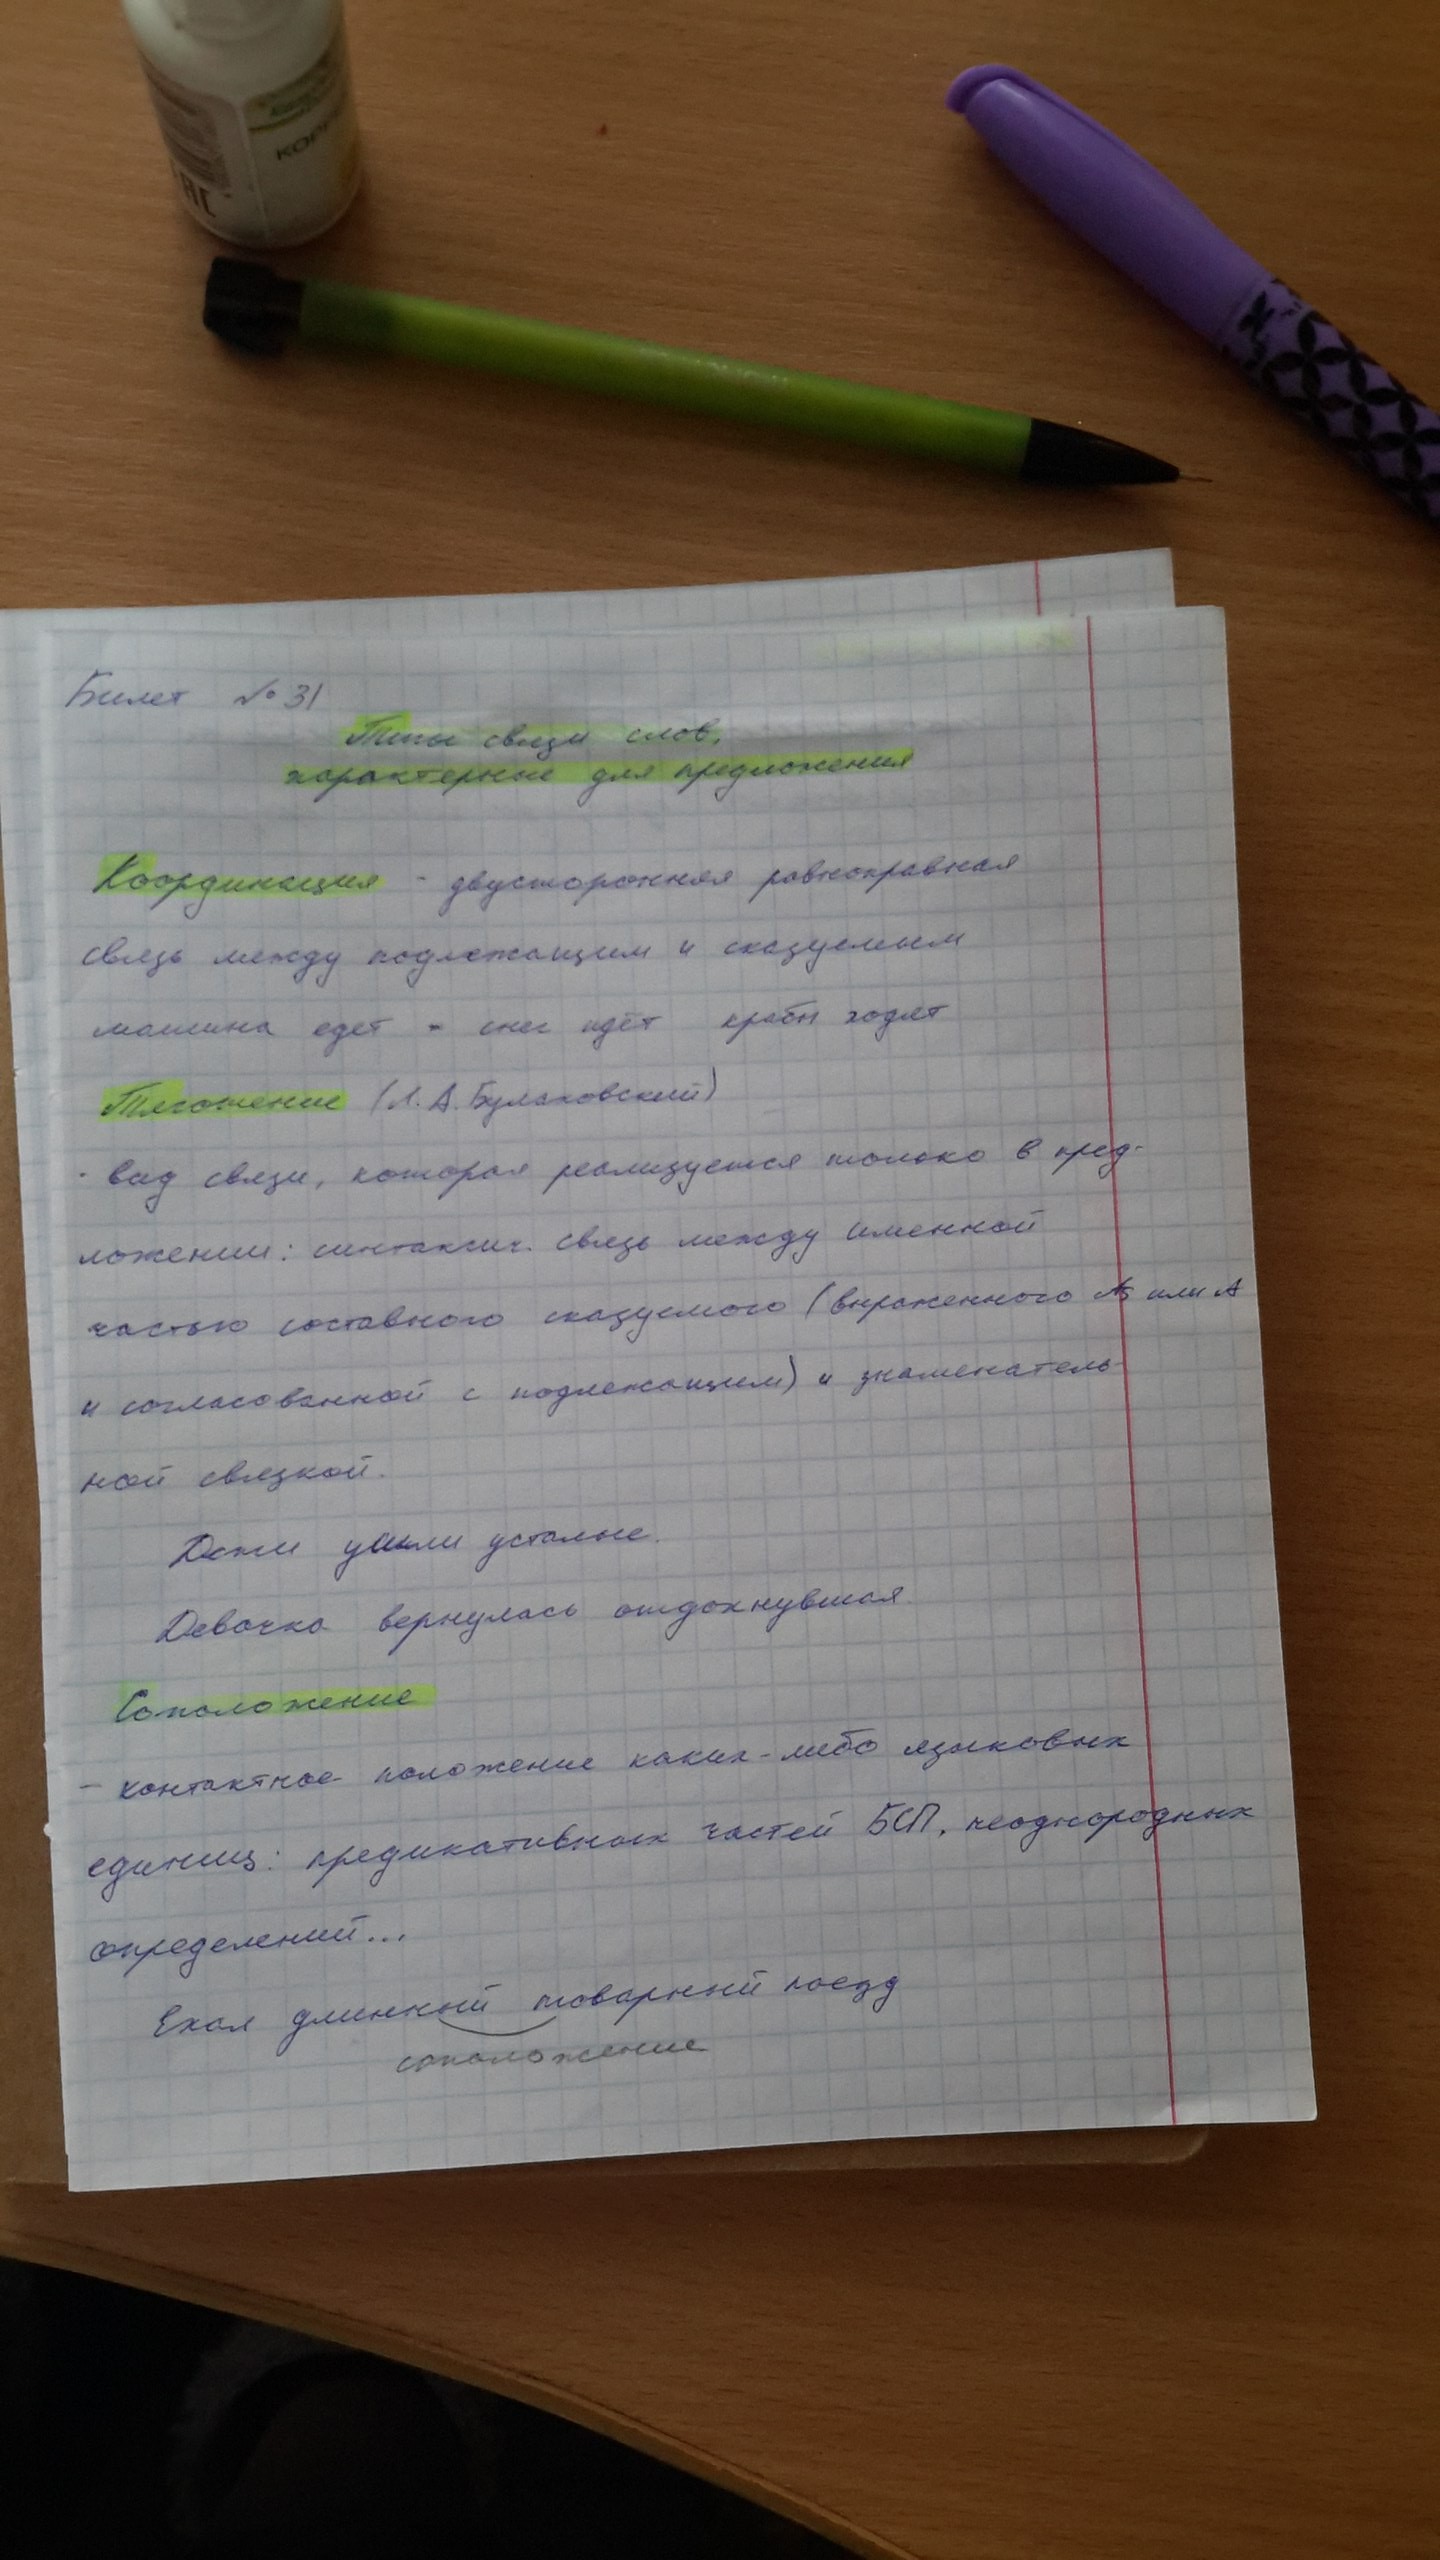 КОРР
Билет № 31
Типы связи слов,
характерные для предложения
Координация - двусторонняя равноправная
связь между подлежащим и сказуемым
машина едет - снег идёт крабы ходят
Тяготение (Л. А. Булаховский)
- вид связи, которая реализуется только в пред-
ложении: синтаксич. связь между именной
частью составного сказуемого (выраженного или А
и согласованной с подлежащим) и знаменатель-
ной связкой.
Дети ушли усталые.
Девочка вернулась отдохнувшая.
Соположение
- контактное положение каких-либо языковых
единиц: предикативных частей БСП, неоднородных
определений...
Ехал длинный товарный поезд
соположение